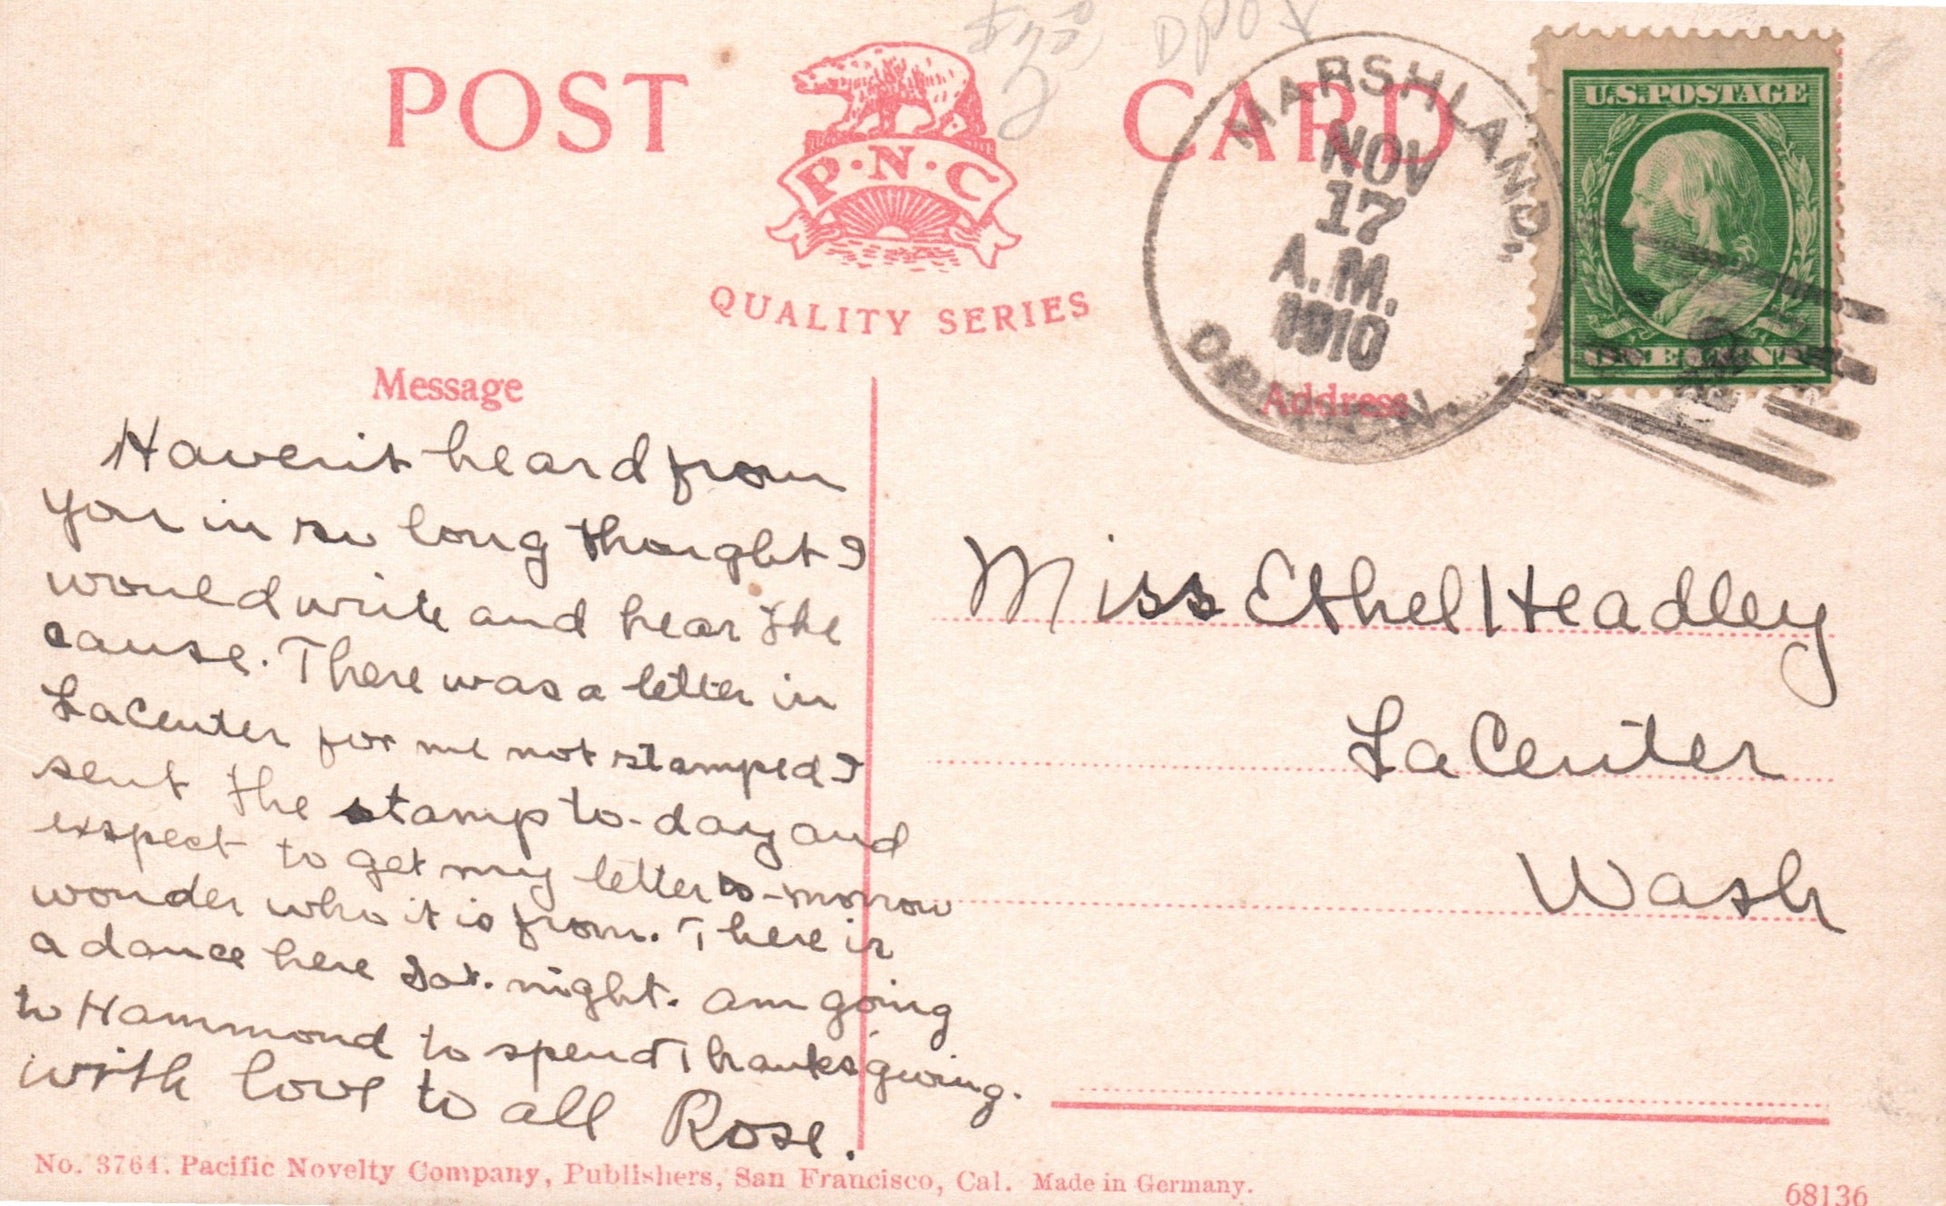 POST CARD
P·N·C
QUALITY SERIES
DPO X
MARSHLAND,
NOV
17
A.M.
1910
OREGON.
U.S. POSTAGE
ONE CENT
Message
Address
Haven't heard from
you in so long thought I
would write and hear the
cause. There was a letter in
LaCenter for me not stamped I
sent the stamp to-day and
exspect to get my letter to-morrow
wonder who it is from. There is
a dance here Sat. night. am going
to Hammond to spend Thanksgiving.
with love to all Rose.
Miss Ethel Headley
LaCenter
Wash
No. 3764. Pacific Novelty Company, Publishers, San Francisco, Cal. Made in Germany.
68136